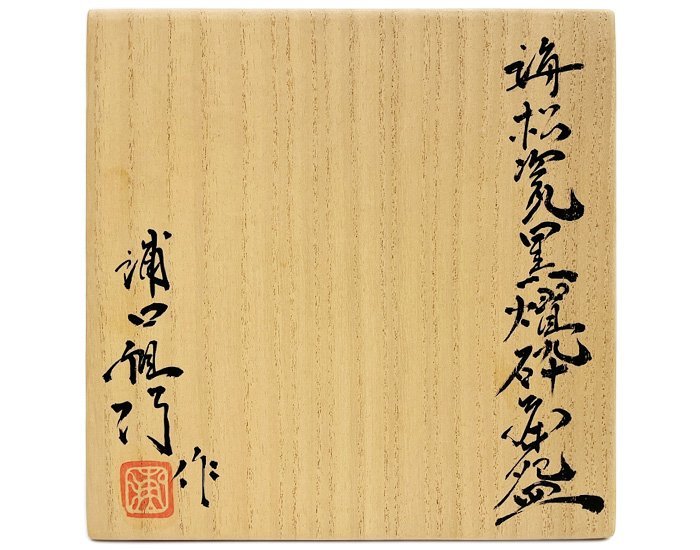 海松瓷黒燿砕茶盌
浦口雅行 作